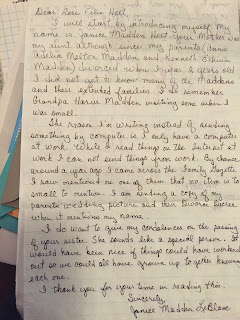 Dear Rose Ellen Holt,
I will start by introducing myself. My
name is Janice Madden Holt. Your Mother was
my aunt although since my parents (Annie
Melton Madden and Kenneth Edwin
Madden) divorced when I was 2 years old
I did not get to know many of the Maddens
and their extended families. I do remember
Grandpa Herve Madden writing some when I
was small.
The reason I'm writing instead of sending
something by computer is I only have a computer
at work. While I read things on the Internet at
work I can not send things from work. By chance
around a year ago I came across the Family Gazette
I saw mentioned on one of them that no item is to
small to mention. I am sending a copy of my
parents wedding picture and their Divorce Decree
where it mentions my name.
I do want to give my condolences on the passing
of your sister. She sounds like a special person. It
would have been nice if things could have worked
out so we could all have grown up to getter knowing
each one.
I thank you for your time in reading this.
Sincerely,
Janice Madden LeBlanc